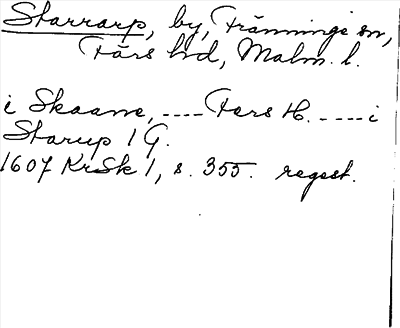 Starrarp, by, Tränninge sn,
Färs hd, Malm. l.
i Skaane, ---- Fars H. ----- i
Starup 1 G.
1607 KrSk 1, s. 355. regest.